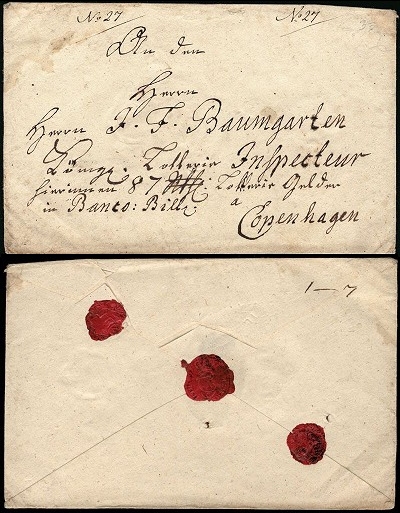 No 27 No 27
An den
Herrn
Herrn J. F. Baumgarten
Königl. Lotterie Inspecteur
hierinnen 87 Lotterie Gelder
in Banco: Bill: a
Copenhagen
1—7